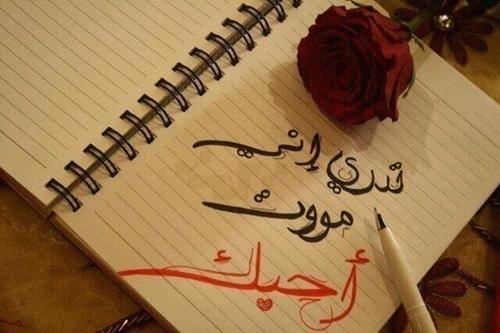 تدري إني
مووت
أحبك